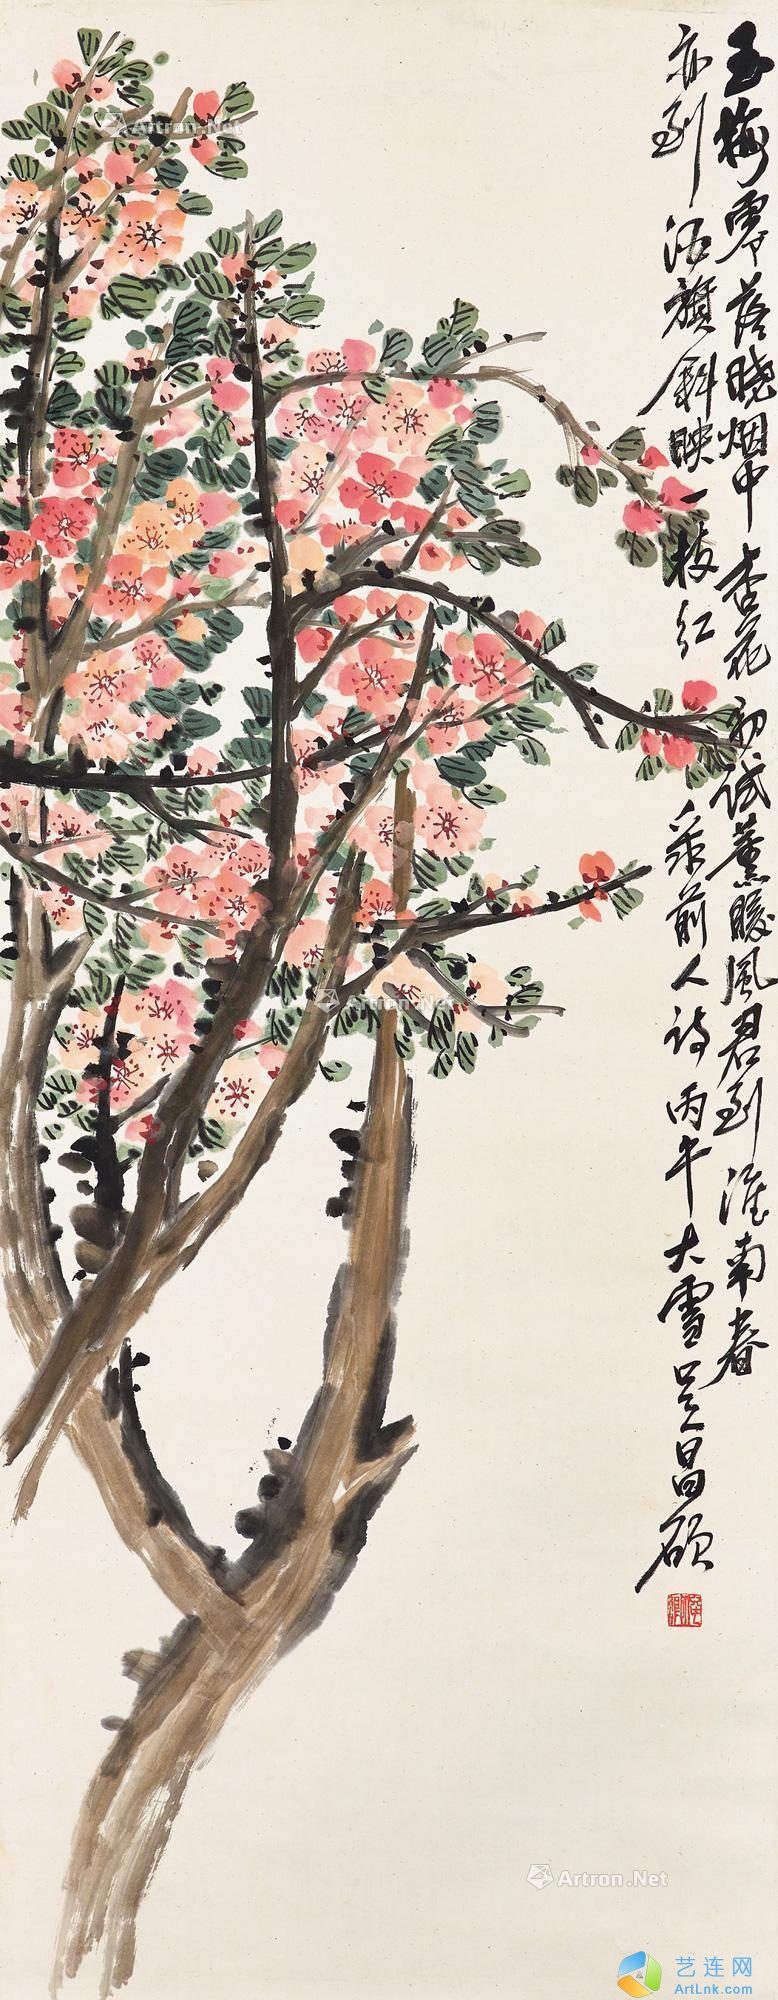 玉梅零落曉烟中杏花初試薰暖風君到淮南春
亦到酒旗斜映一枝紅
采前人詩丙午大雪吴昌碩
Artron.Net
Artron.Net
Artron.Net
艺连网
ArtLnk.com